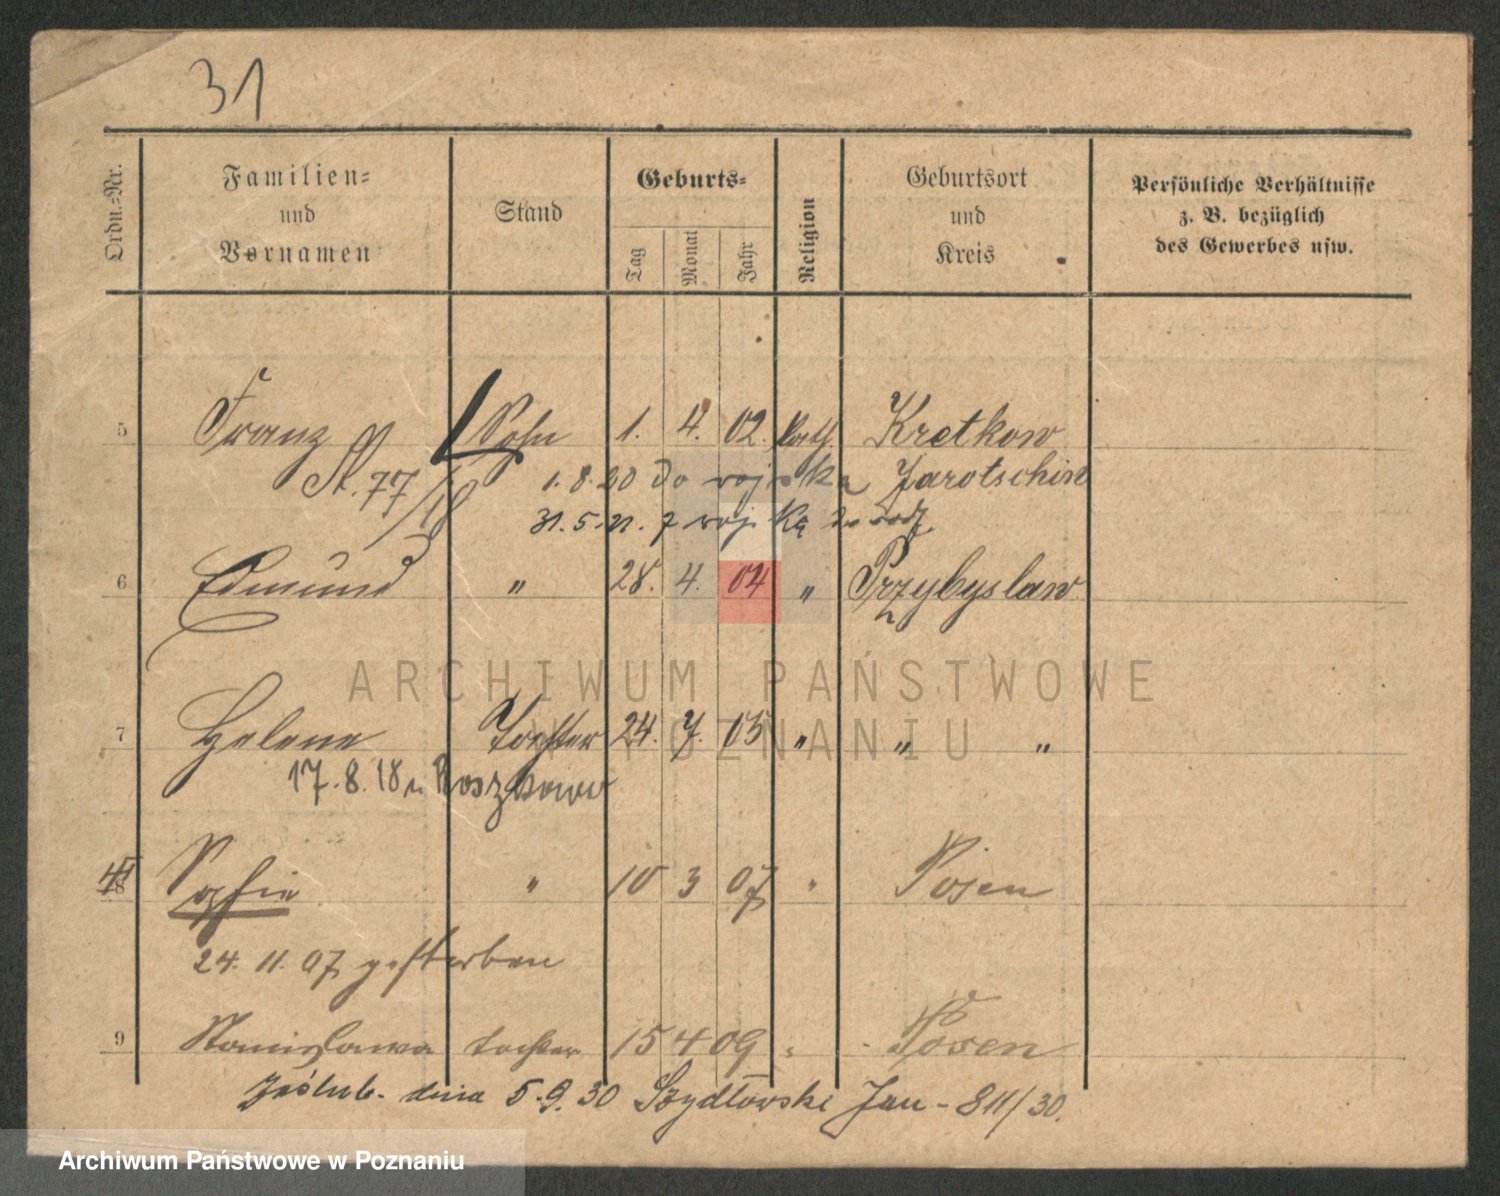 31
Ordn.-Nr.
Familien-
und
Vornamen
Stand
Geburts-
Tag
Monat
Jahr
Religion
Geburtsort
und
Kreis
Persönliche Verhältnisse
z. B. bezüglich
des Gewerbes usw.
5 Franz Sohn 1. 4. 02. Kath. Kretkow
St. 77/18 1.8.20 do wojska Jarotschin
31.5.21. z wojska
6 Edmund " 28. 4. 04 " Przybyslaw
7 Helene Tochter 24. 7. 05 " " "
17.8.18 n. Roszkowo
8 Sophie " 10 3 07 " Posen
24. 11. 07 gestorben
9 Stanislawa Tochter 15 4 09 " Posen
Zaślub. dnia 5.9.30 Szydłowski Jan - 811/30.
ARCHIWUM PAŃSTWOWE
W POZNANIU
Archiwum Państwowe w Poznaniu